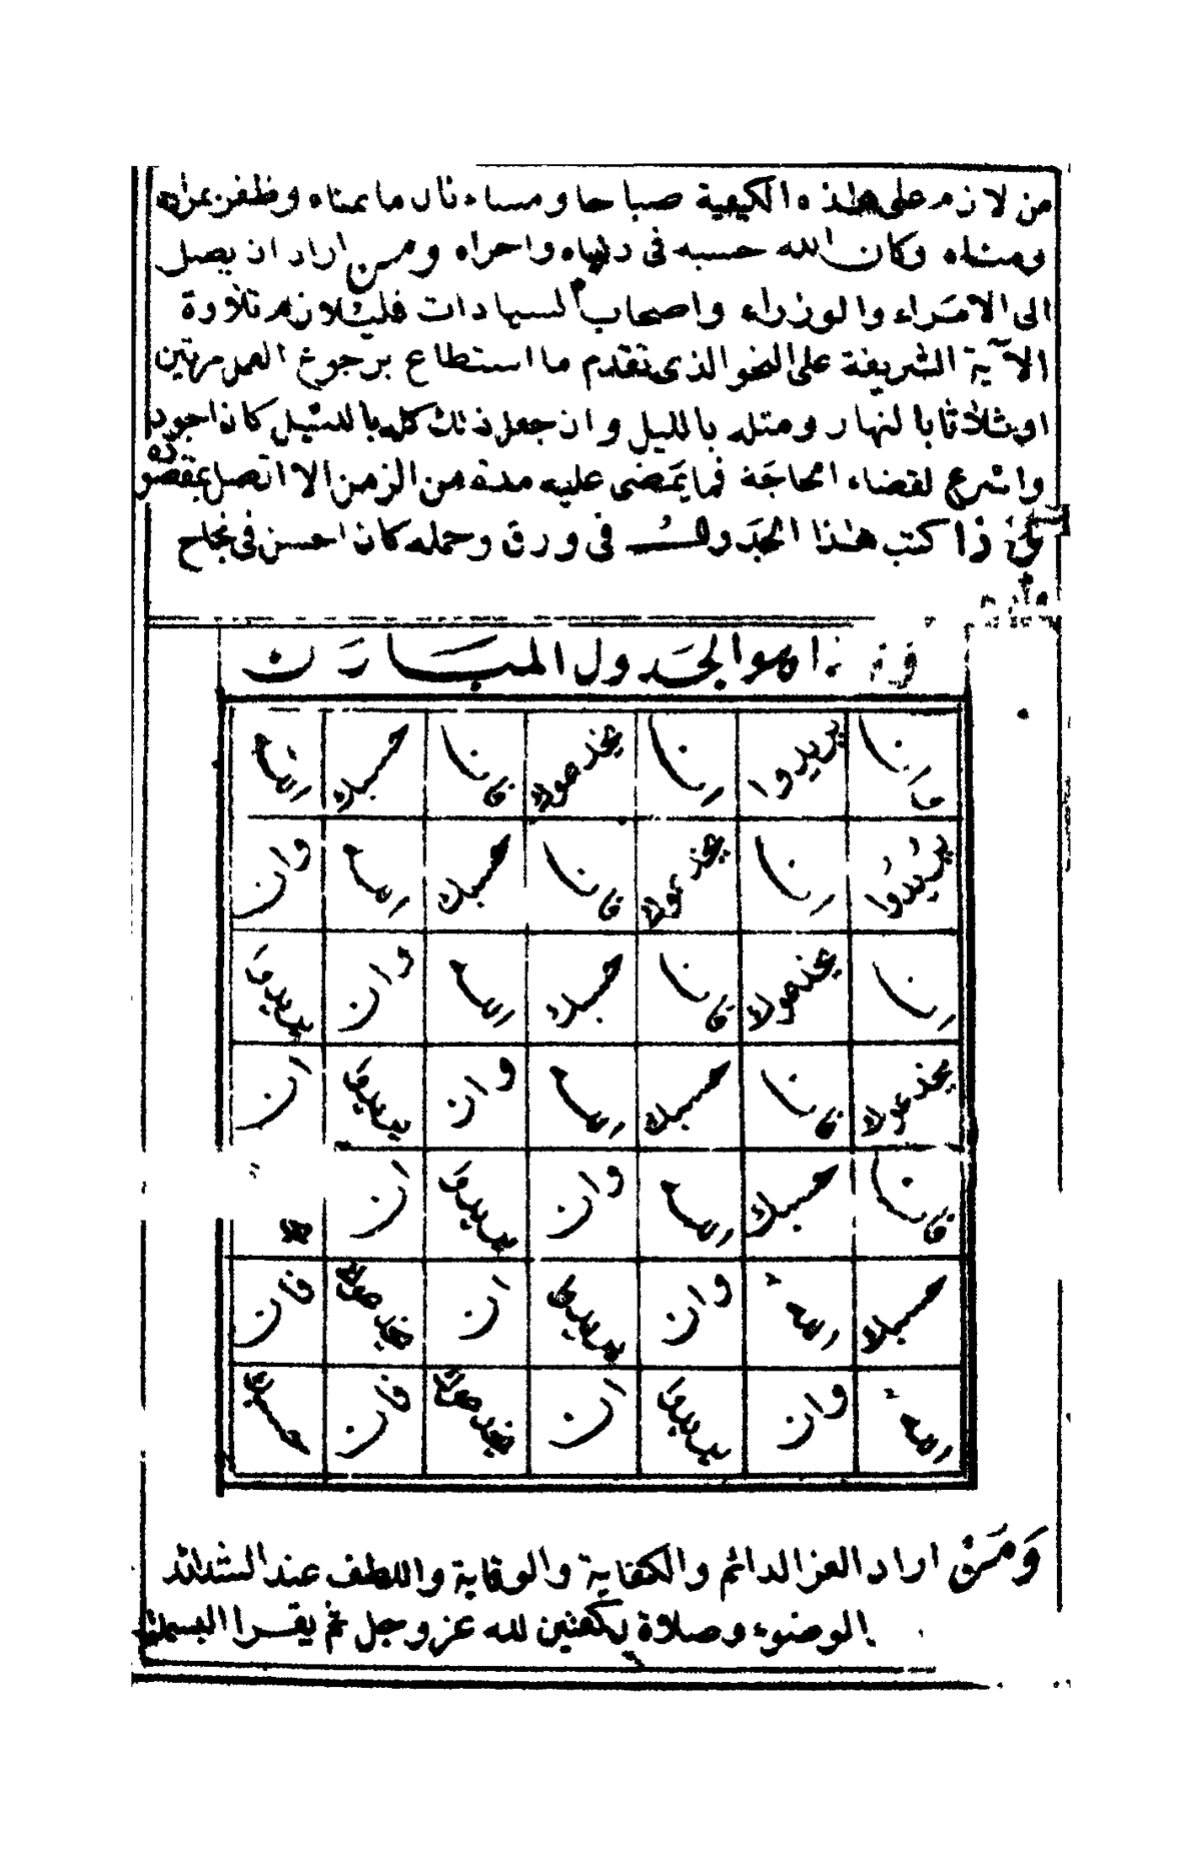 من لازم على هذه الكيفية صباحا ومساء نال ما يمناه وظفر بمراده
ومناه وكان الله حسبه فى دنياه واخراه ومن اراد ان يصل
الى الامراء والوزراء واصحاب السيادات فليلازم تلاوة
الآية الشريفة على النحو الذى تقدم ما استطاع برجوع العمل مرتين
او ثلاثا بالنهار ومثله بالليل وان جعل ذلك كله بالليل كان اجود
واسرع لقضاء الحاجة فما يمضى عليه مدة من الزمن الا اتصل بمقصوده
كتب هذا الجدول فى ورق وحمله كان احسن فى نجاح
هو الجدول المبارك
وان يريدوا ان يخدعوك فان حسبك الله
يريدوا ان يخدعوك فان حسبك الله وان
ان يخدعوك فان حسبك الله وان يريدوا
يخدعوك فان حسبك الله وان يريدوا ان
فان حسبك الله وان يريدوا ان
حسبك الله وان يريدوا ان يخدعوك فان
الله وان يريدوا ان يخدعوك فان حسبك
ومن اراد العز الدائم والكفاية والوقاية واللطف عند الشدائد
الوضوء وصلاة ركعتين لله عز وجل ثم يقرا البسملة